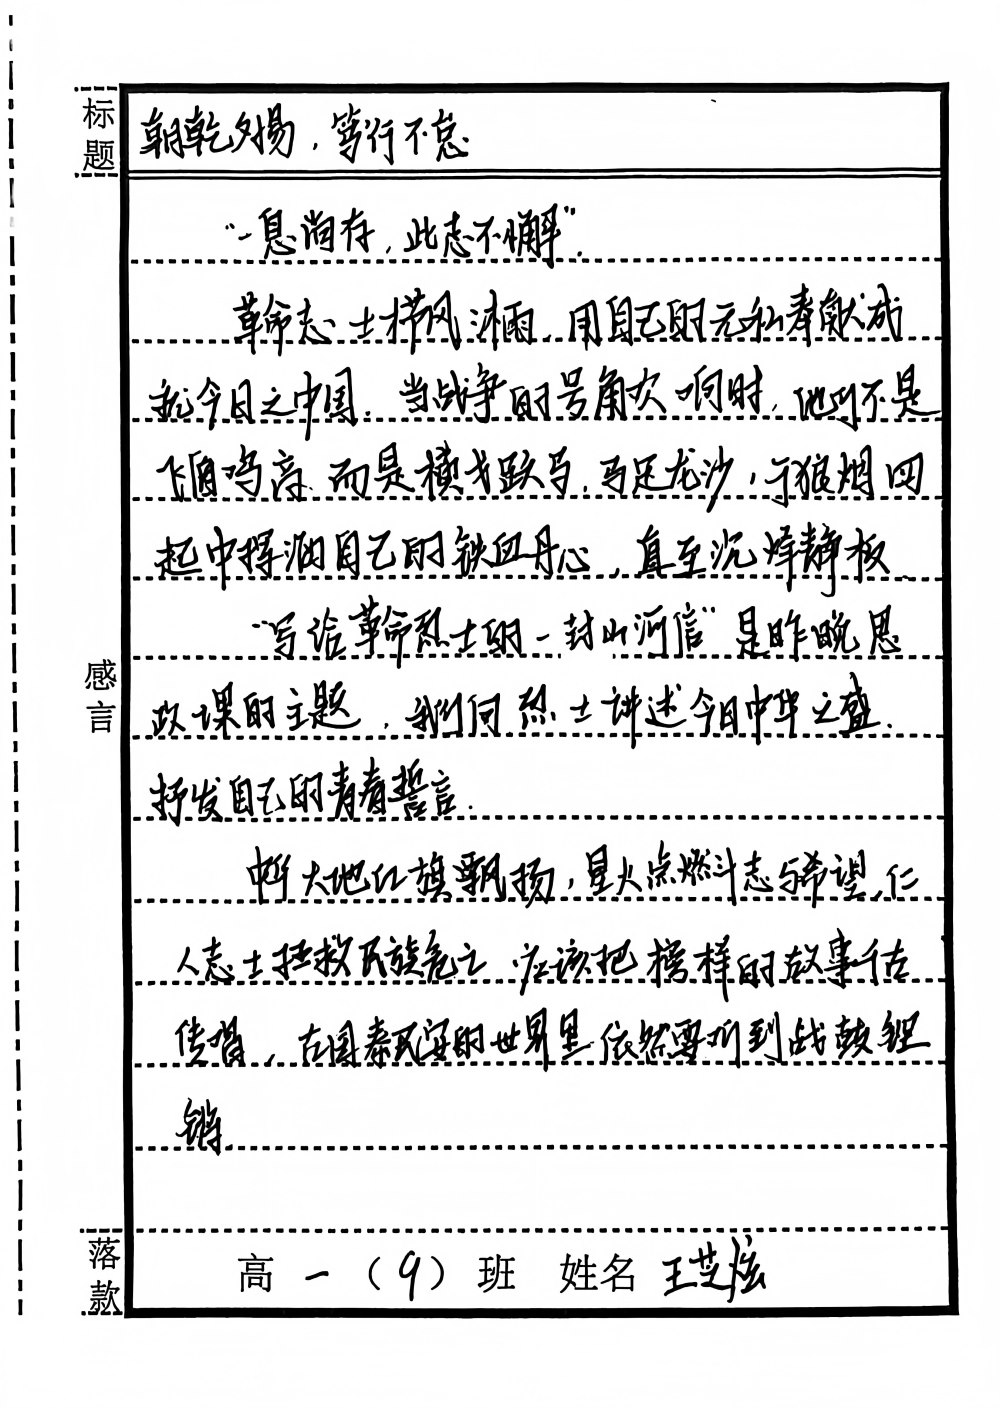 标题
朝乾夕惕，笃行不怠
“一息尚存，此志不懈”。
革命志士栉风沐雨，用自己的无私奉献成
就今日之中国。当战争的号角吹响时，他们不是
飞自鸣高，而是横戈跃马，马足龙沙，于狼烟四
起中挥洒自己的铁血丹心，直至沉烽静柝。
“写给革命烈士的一封山河信”是昨晚思
政课的主题，我们向烈士讲述今日中华之盛，
抒发自己的青春誓言。
感言
中华大地红旗飘扬，星火点燃斗志与希望，仁
人志士拯救民族危亡，应该把榜样的故事千古
传唱，在国泰民安的世界里依然要听到战鼓铿
锵。
落款
高一（9）班 姓名 王芝炫